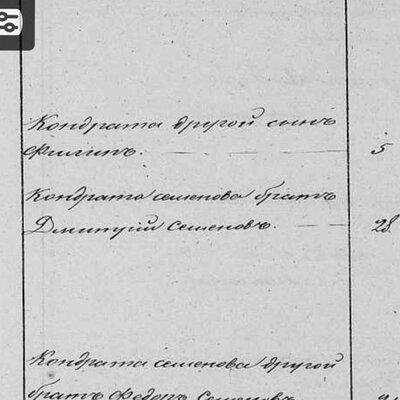 Кондрата другой сынъ
Филипъ. 5
Кондрата семенова братъ
Дмитрій Семеновъ. 28.
Кондрата семенова другой
братъ Федоръ Семеновъ